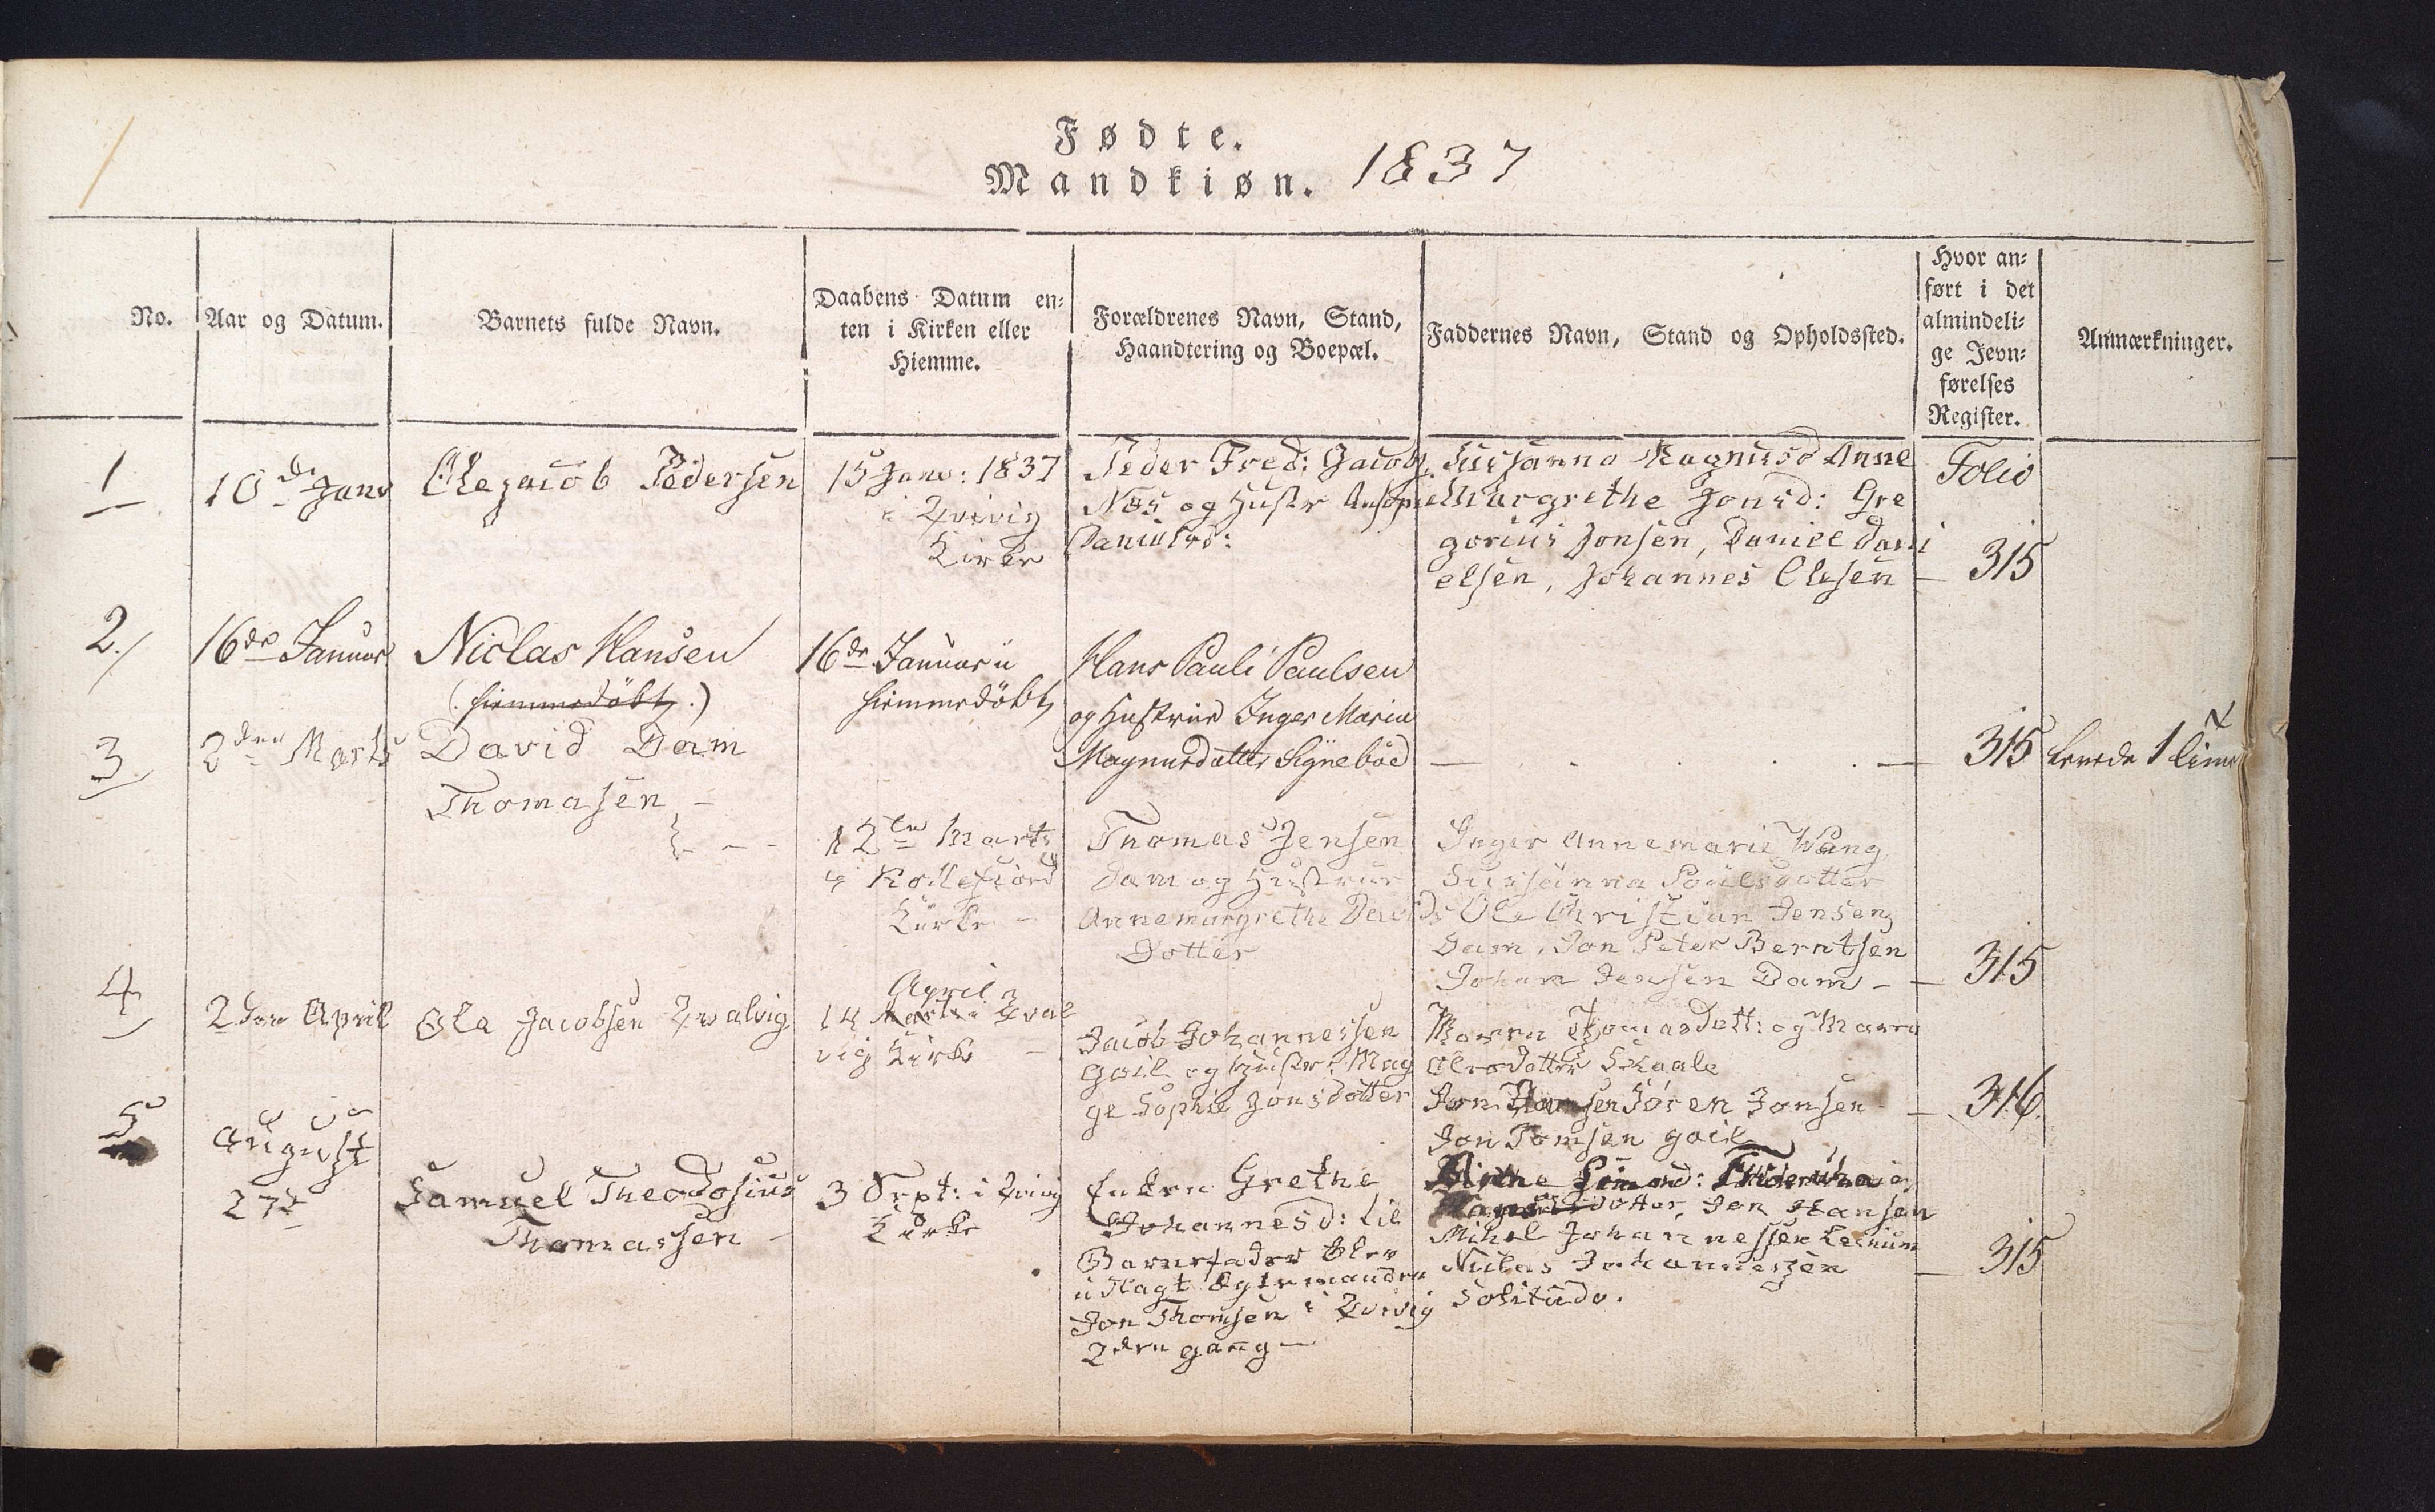 Fødte.
Mandkiøn. 1837
No.
Aar og Datum.
Barnets fulde Navn.
Daabens Datum en-
ten i Kirken eller
Hiemme.
Forældrenes Navn, Stand,
Haandtering og Boepæl.
Faddernes Navn, Stand og Opholdssted.
Hvor an-
ført i det
almindeli-
ge Jevn-
førelses
Register.
Anmærkninger.
1
10de Janv
Olejacob Pedersen
15 Janv: 1837
i Qvivig
Kirke
Peder Fred: Jacobs.
Næs og Hustr
Danielsd:
Susanna Magnusd Anne
Margrethe Jonsd: Gre
gorius Jonsen, Daniel Dani
elsen, Johannes Olesen
Folio
315
2.
16de Januar
Niclas Hansen
(hiemmedøbt.)
16de Januar
hiemmedøbt
Hans Pauli Paulsen
og Hustrue Inger Maria
Magnusdatter Signebøe
315
levede 1 Time
3
2den Marts
David Dam
Thomasen
12te Marts
i Kollefiord
Kirke
Thomas Jensen
Dam og Hustrue
Annemargrethe Davids
Dotter
Inger Annemarie Wang
Sussanna Poulsdotter
Ole Christian Jensen
Dam, Jon Peter Berntsen
Johan Jensen Dam
315
4
2den April
Ole Jacobsen Qvalvig
April
14 Marts i Qval
vig Kirke
Jacob Johannessen
Goil og Hustr: Mag
ge Sophie Jonsdotter
Maren Thomasdott: og Maren
Olesdotter Skaale
Jon Hansen Sören Jonsen
Jon Tomsen goil
316
5
August
27de
Samuel Theodosius
Thomassen
3 Sept: i Qvivig
Kirke
Enken Grethe
Johannesd: til
Barnefader blev
udlagt Egtemanden
Jon Thomsen i Qvivig
2den gang
Birthe Simond:
dotter, Jon Hansen
Mikel Johannessen Leinum
Niclas Johannessen
Solitudo.
315